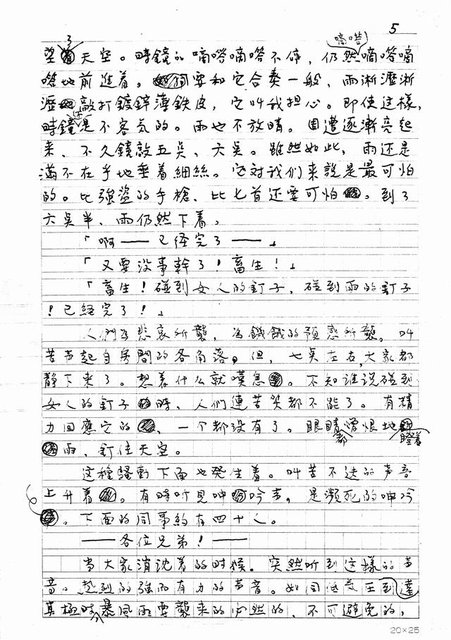 5
望了天空。時鐘的嘀嗒嘀嗒不停，仍然嘀嗒嘀嗒嘀
嗒地前進着。如同要和它合奏一般，雨淅瀝淅
瀝敲打鍍鋅薄鉄皮，它叫我担心。即使這樣，
時鐘還是不客気的。雨也不放晴。周遭逐漸亮起
来，不久鐘敲五点、六点。虽然如此，雨还是
满不在乎地牽着細絲。它对我们来說是最可怕
的。比強盗的手槍、比匕首还要可怕。到了
六点半，雨仍然下着，
「啊——已経完了——」
「又要没事幹了！畜生！」
「畜生！碰到女人的釘子，碰到雨的釘子
！已経完了！」
人們為悲哀所襲，為飢餓的預感所襲。叫
苦声起自房間的各角落。但，七点左右，大家都
静下来了。想着什么就嘆息。不知谁說碰到
女人的釘子時，人們連苦笑都不能了。有精
力回應它的，一个都没有了。眼睛都滑恨地瞪着
雨、釘住天空。
这種騷動下面也発生着。叫苦不迭的声音
上升着。有時听見呻吟声，是瀕死的呻吟
。下面的同事約有四十人。
——各位兄弟！——
当大家消沈着的时候。突然听到这樣的声
音。熱烈的強而有力的声音。如同感受到達
其極時，暴風雨要襲来的必然的，不可避免的，
20×25